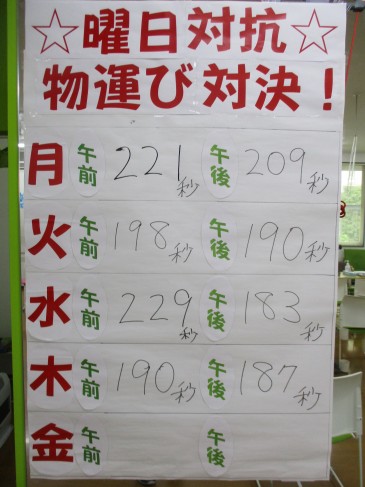 ☆曜日対抗☆
物運び対決!
月 午前 221秒 午後 209秒
火 午前 198秒 午後 190秒
水 午前 229秒 午後 183秒
木 午前 190秒 午後 187秒
金 午前 午後